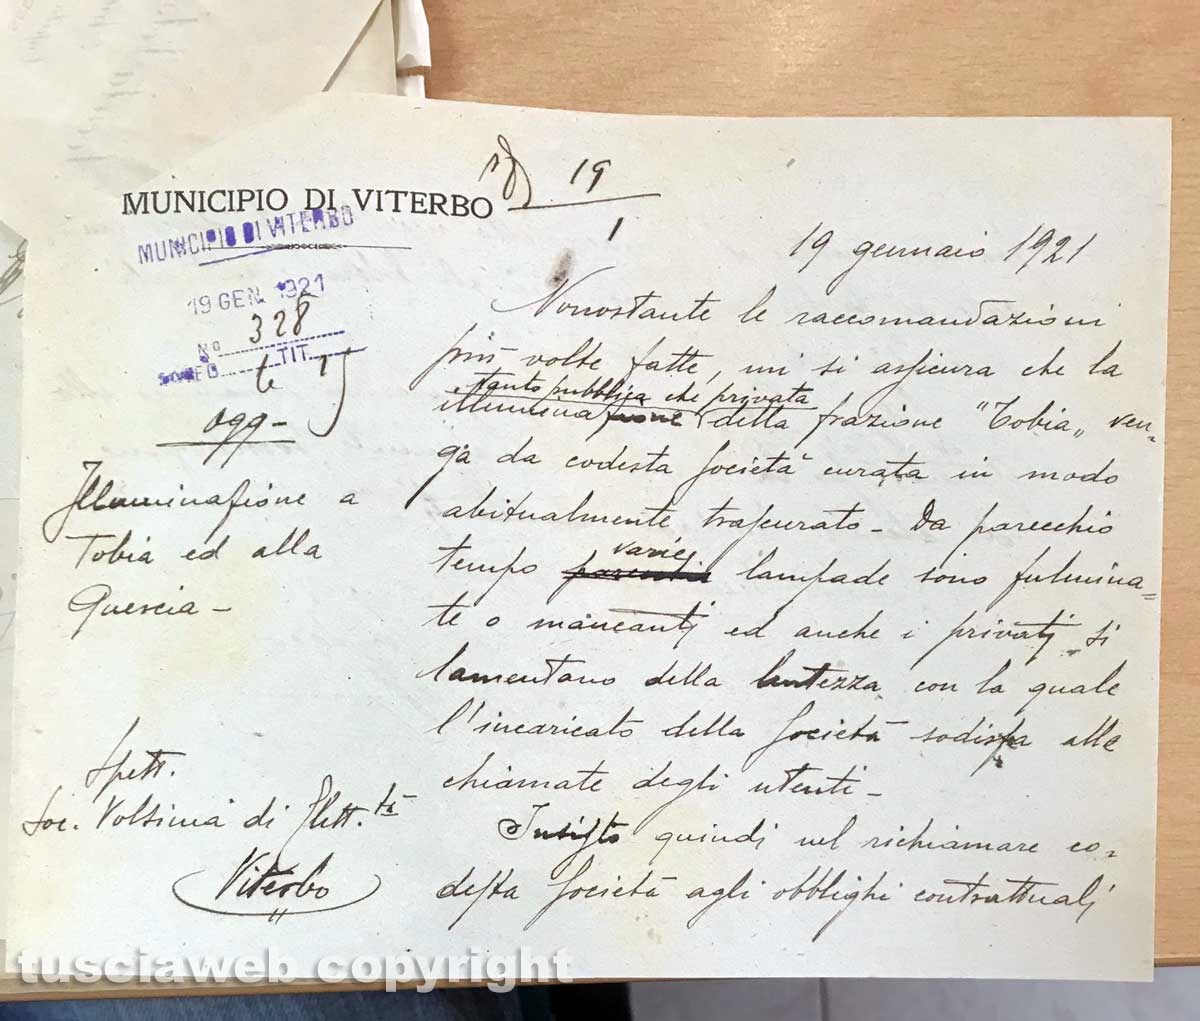 MUNICIPIO DI VITERBO
19
1
MUNICIPIO DI VITERBO
19 GEN. 1921
No 328
TIT.
ogg-
Illuminazione a
Tobia ed alla
Quercia -
Spett.
Soc. Volsinia di Elett.tà
Viterbo
19 gennaio 1921
Nonostante le raccomandazioni
più volte fatte, mi si assicura che la
tanto pubblica che privata
illuminazione della frazione "Tobia" ven-
ga da codesta Società curata in modo
abitualmente trascurato - Da parecchio
varie
tempo lampade sono fulmina=
te o mancanti ed anche i privati si
lamentano della lentezza con la quale
l'incaricato della Società sodisfa alle
chiamate degli utenti -
Insisto quindi nel richiamare co-
desta Società agli obblighi contrattuali
tusciaweb copyright